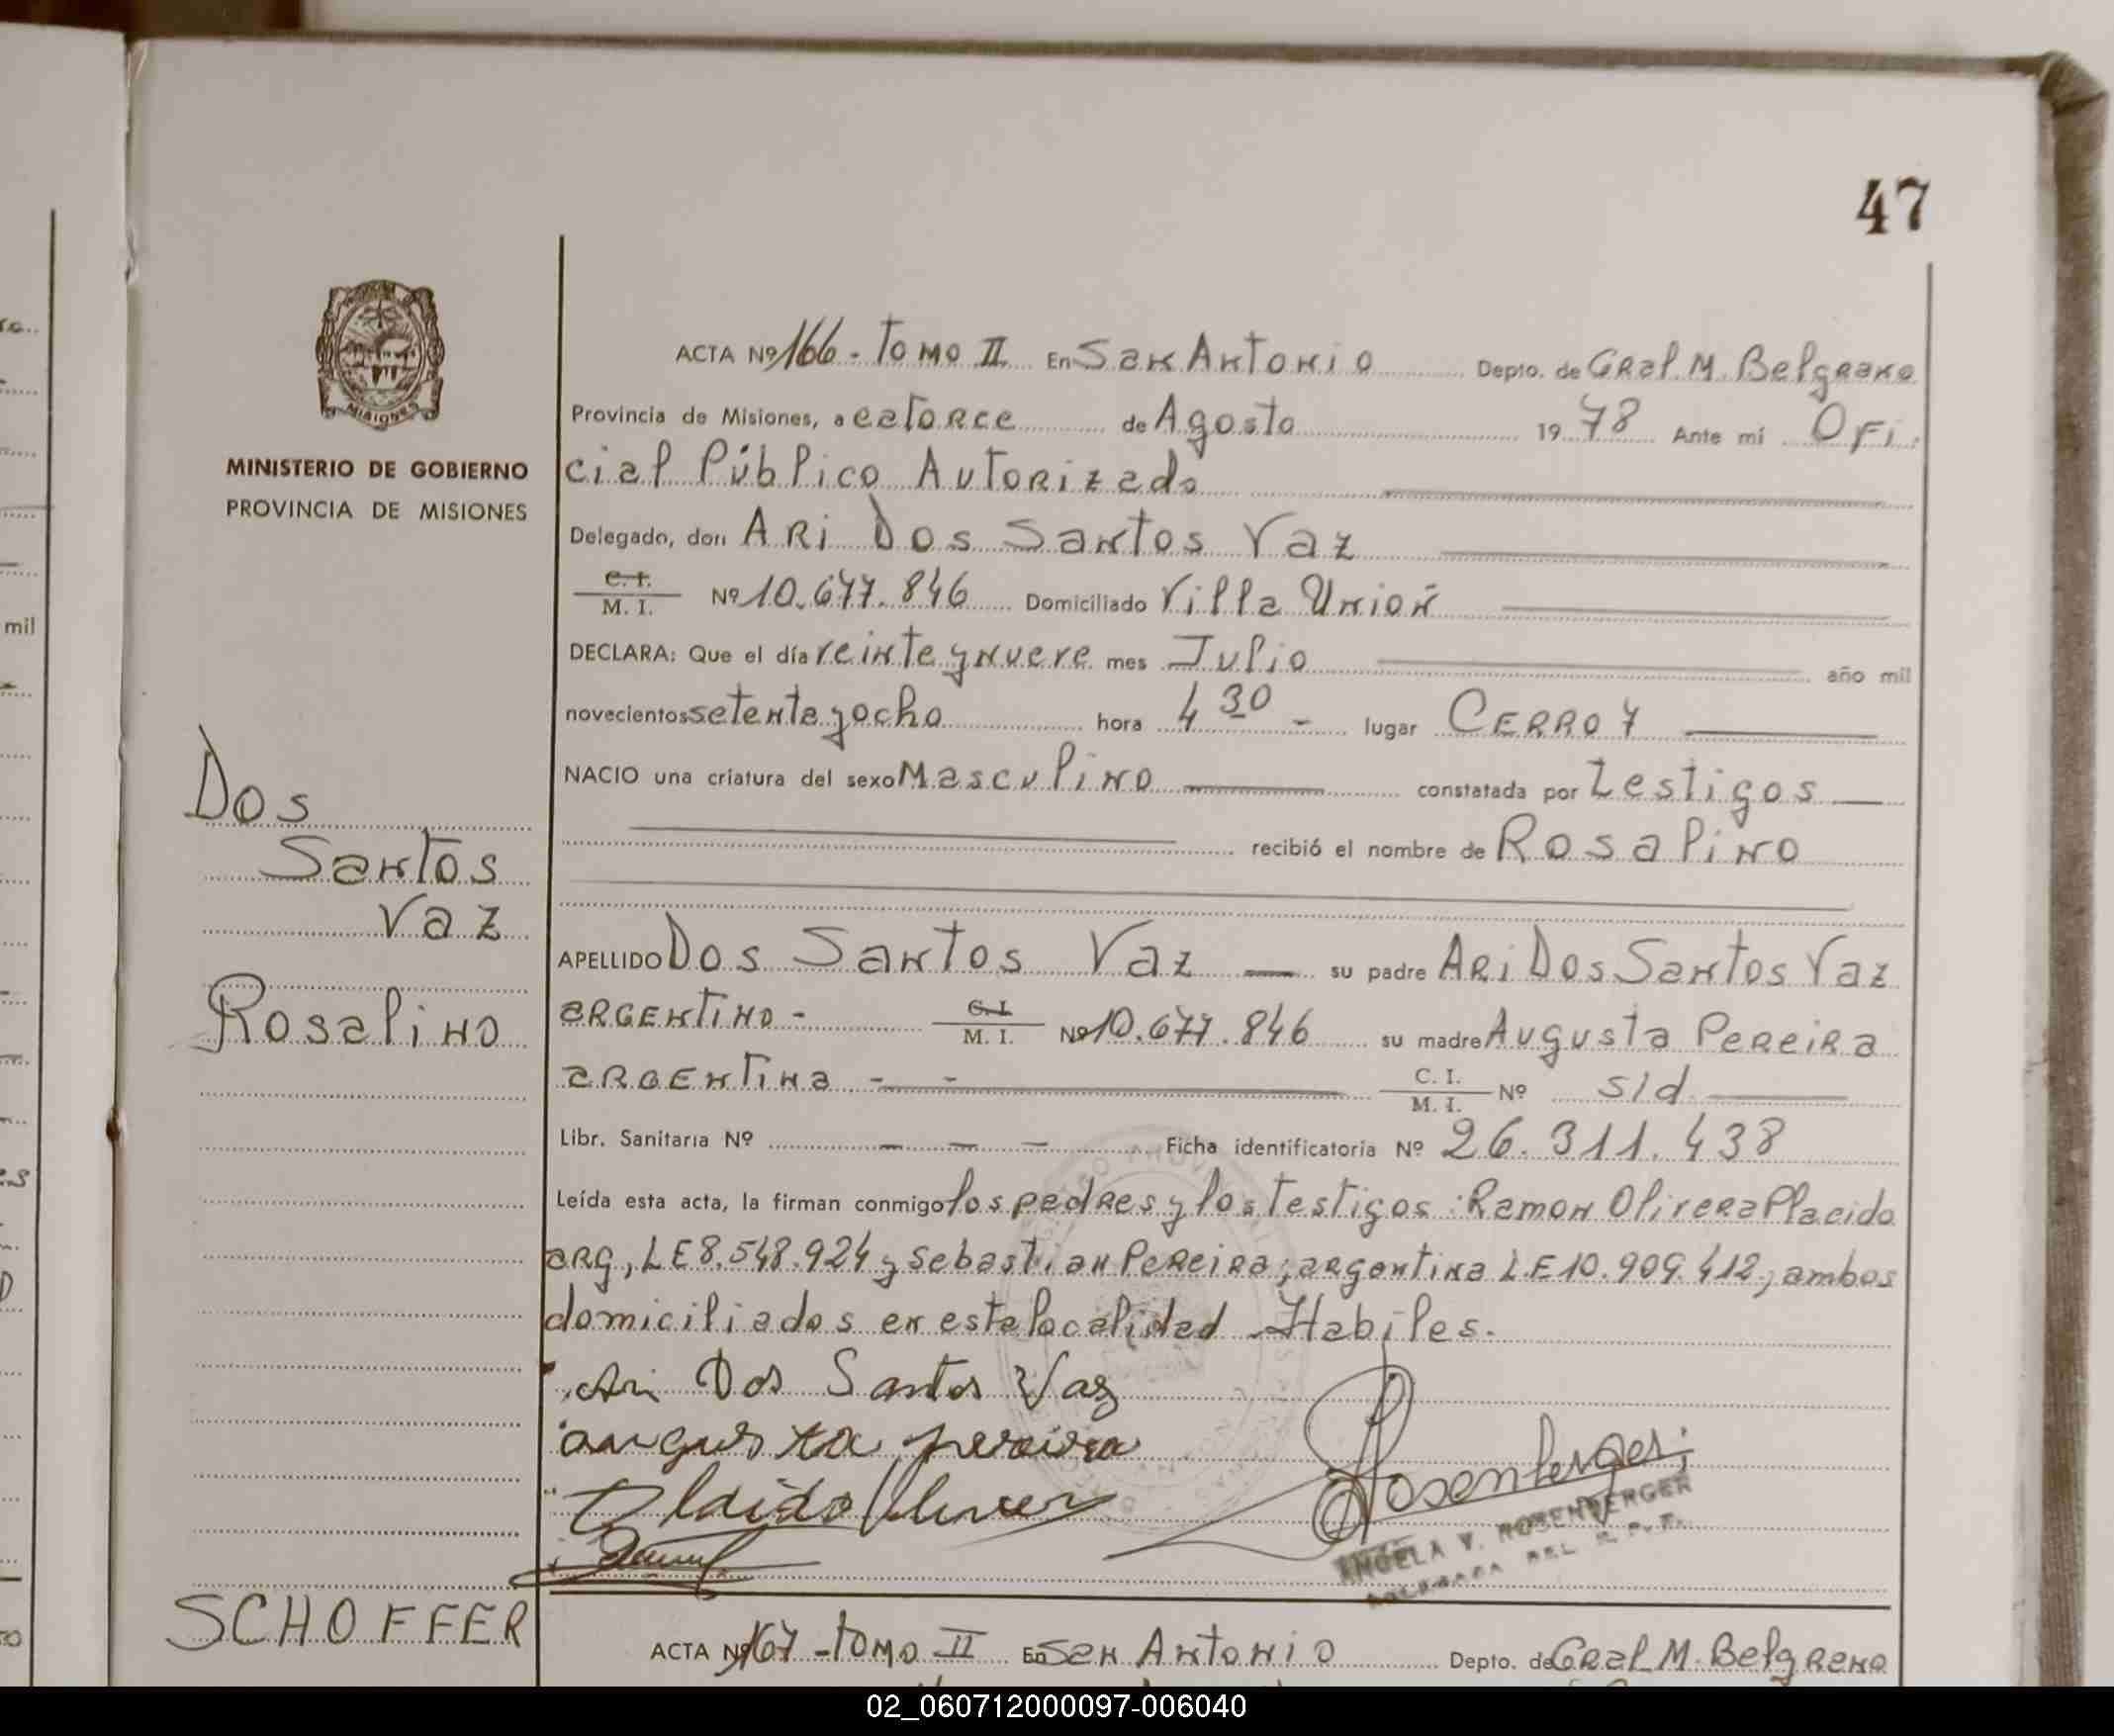 47
ACTA Nº 166 - Tomo II En San Antonio Depto. de Gral M. Belgrano
Provincia de Misiones, a catorce de Agosto 1978 Ante mi Ofi-
cial Público Autorizado
Delegado, don Ari Dos Santos Vaz
C. I.
M. I. Nº 10.677.846 Domiciliado Villa Unión
DECLARA: Que el día veinte y nueve mes Julio año mil
novecientos setenta y ocho hora 4 30 - lugar CERRO 7
NACIO una criatura del sexo Masculino constatada por testigos
recibió el nombre de Rosalino
APELLIDO Dos Santos Vaz su padre Ari Dos Santos Vaz
argentino - C. I.
M. I. Nº 10.677.846 su madre Augusta Pereira
argentina - - C. I.
M. I. Nº s/d
Libr. Sanitaria Nº - - - Ficha identificatoria Nº 26.311.438
Leída esta acta, la firman conmigo los padres y los testigos: Ramon Olivera Placido
arg, LE 8.548.924 y Sebastian Pereira, argentina LE 10.909.412, ambos
domiciliados en esta localidad Habiles.
Ari Dos Santos Vaz
augusta pereira
Rosenberger
ANGELA V. ROSENBERGER
DELEGADA DEL R. P. P.
MINISTERIO DE GOBIERNO
PROVINCIA DE MISIONES
MISIONES
Dos
Santos
Vaz
Rosalino
SCHOFFER
ACTA Nº 167 - Tomo II En San Antonio Depto. de Gral M. Belgrano
mil
02_060712000097-006040